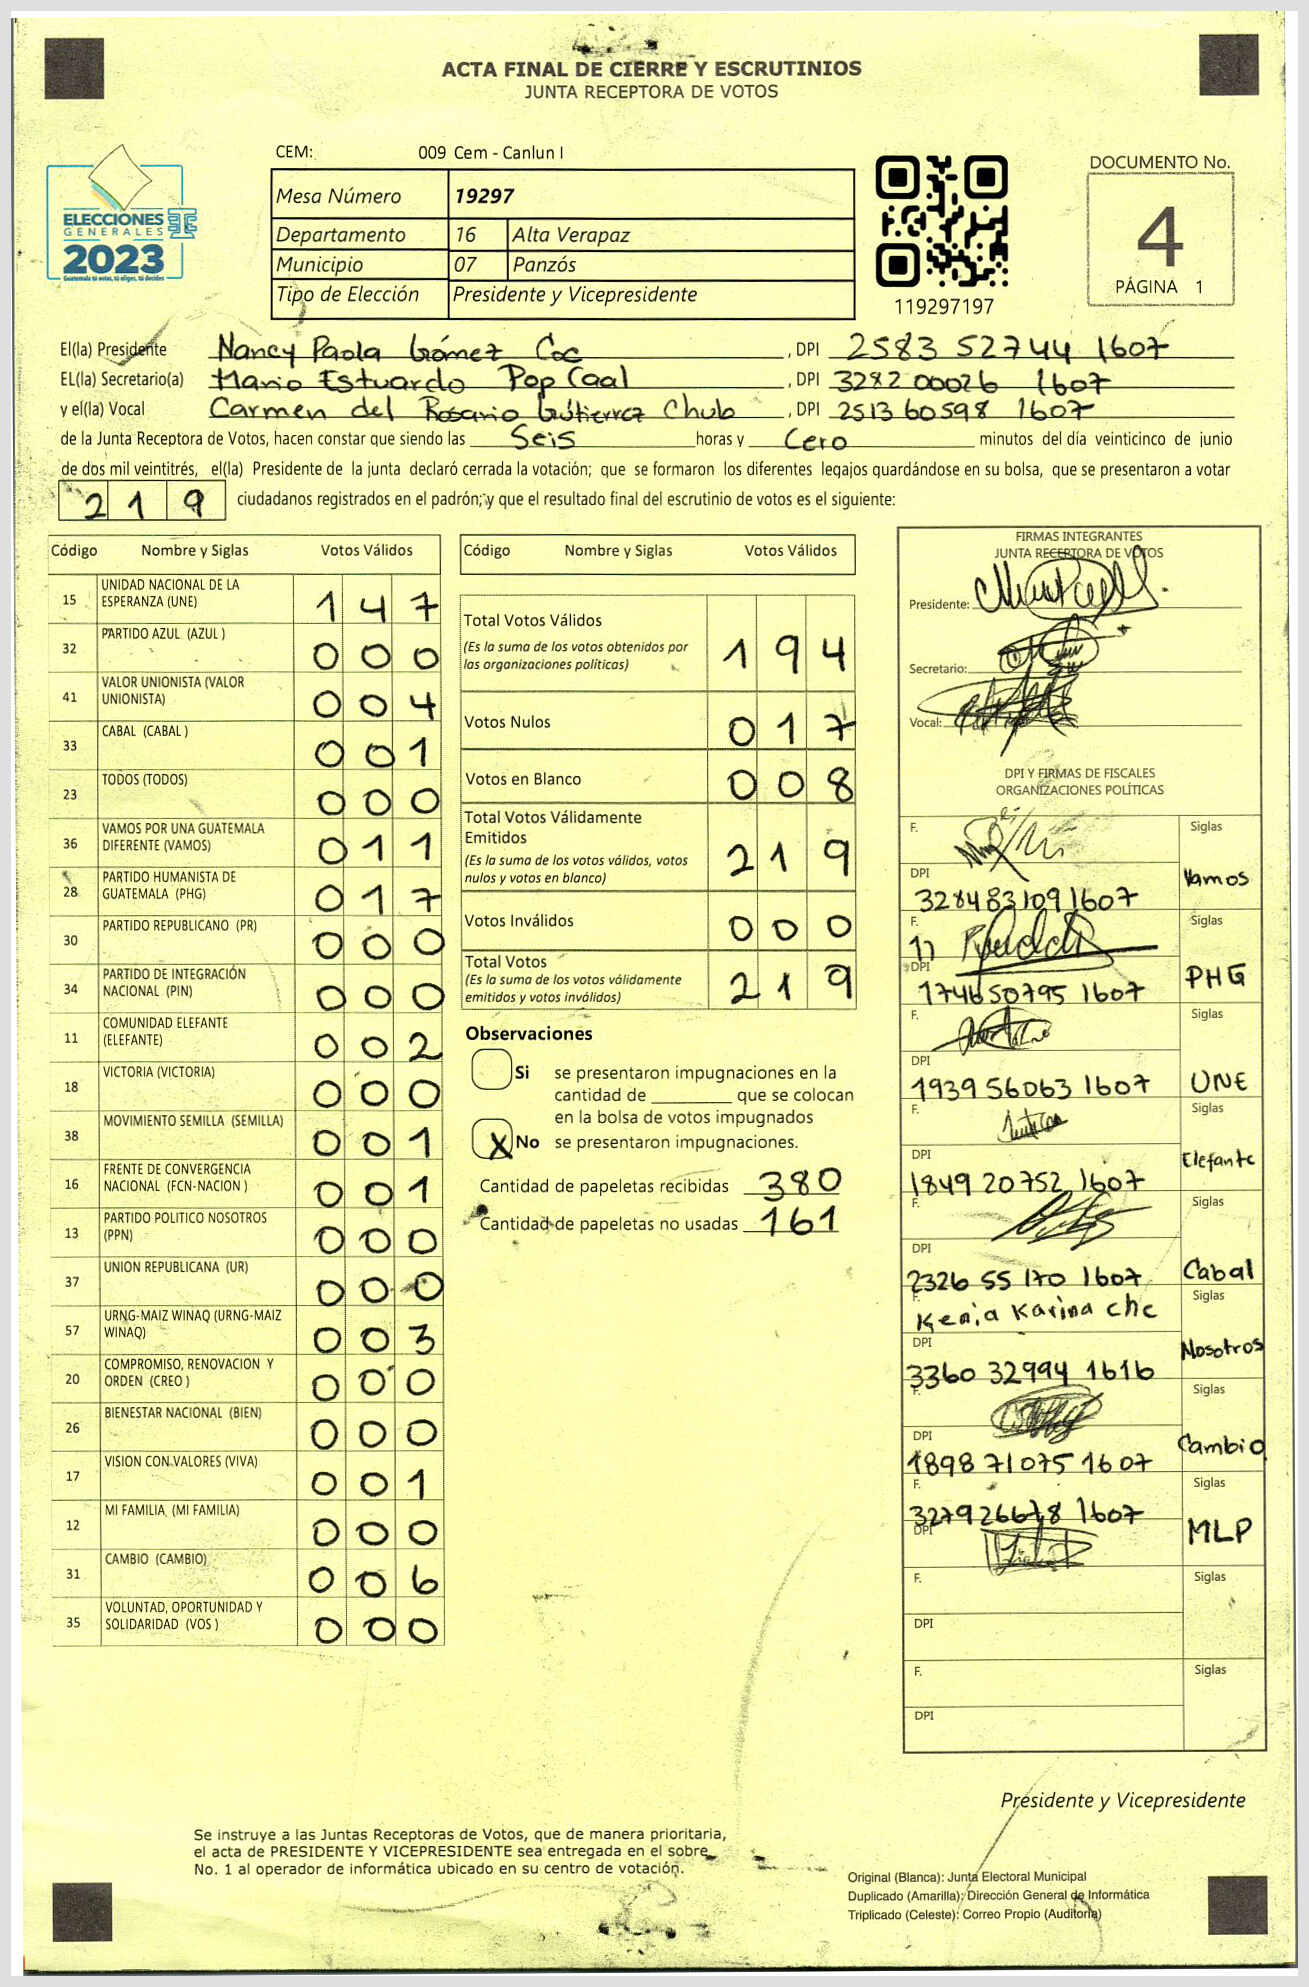 ACTA FINAL DE CIERRE Y ESCRUTINIOS
JUNTA RECEPTORA DE VOTOS
CEM: 009 Cem - Canlun I
ELECCIONES
GENERALES
2023
Guatemala tú votas, tú eliges, tú decides
Mesa Número 19297
Departamento 16 Alta Verapaz
Municipio 07 Panzós
Tipo de Elección Presidente y Vicepresidente
119297197
DOCUMENTO No.
4
PÁGINA 1
El(la) Presidente Nancy Paola Gómez Coc , DPI 2583 52744 1607
EL(la) Secretario(a) Mario Estuardo Pop Caal , DPI 3282 00026 1607
y el(la) Vocal Carmen del Rosario Gútierrez Chub , DPI 2513 60598 1607
de la Junta Receptora de Votos, hacen constar que siendo las Seis horas y Cero minutos del día veinticinco de junio
de dos mil veintitrés, el(la) Presidente de la junta declaró cerrada la votación; que se formaron los diferentes legajos quardándose en su bolsa, que se presentaron a votar
219 ciudadanos registrados en el padrón; y que el resultado final del escrutinio de votos es el siguiente:
Código Nombre y Siglas Votos Válidos
15 UNIDAD NACIONAL DE LA ESPERANZA (UNE) 1 4 7
32 PARTIDO AZUL (AZUL ) 0 0 0
41 VALOR UNIONISTA (VALOR UNIONISTA) 0 0 4
33 CABAL (CABAL ) 0 0 1
23 TODOS (TODOS) 0 0 0
36 VAMOS POR UNA GUATEMALA DIFERENTE (VAMOS) 0 1 1
28 PARTIDO HUMANISTA DE GUATEMALA (PHG) 0 1 7
30 PARTIDO REPUBLICANO (PR) 0 0 0
34 PARTIDO DE INTEGRACIÓN NACIONAL (PIN) 0 0 0
11 COMUNIDAD ELEFANTE (ELEFANTE) 0 0 2
18 VICTORIA (VICTORIA) 0 0 0
38 MOVIMIENTO SEMILLA (SEMILLA) 0 0 1
16 FRENTE DE CONVERGENCIA NACIONAL (FCN-NACION ) 0 0 1
13 PARTIDO POLITICO NOSOTROS (PPN) 0 0 0
37 UNION REPUBLICANA (UR) 0 0 0
57 URNG-MAIZ WINAQ (URNG-MAIZ WINAQ) 0 0 3
20 COMPROMISO, RENOVACION Y ORDEN (CREO ) 0 0 0
26 BIENESTAR NACIONAL (BIEN) 0 0 0
17 VISION CON VALORES (VIVA) 0 0 1
12 MI FAMILIA (MI FAMILIA) 0 0 0
31 CAMBIO (CAMBIO) 0 0 6
35 VOLUNTAD, OPORTUNIDAD Y SOLIDARIDAD (VOS ) 0 0 0
Código Nombre y Siglas Votos Válidos
Total Votos Válidos
(Es la suma de los votos obtenidos por
las organizaciones políticas) 1 9 4
Votos Nulos 0 1 7
Votos en Blanco 0 0 8
Total Votos Válidamente
Emitidos
(Es la suma de los votos válidos, votos
nulos y votos en blanco) 2 1 9
Votos Inválidos 0 0 0
Total Votos
(Es la suma de los votos válidamente
emitidos y votos inválidos) 2 1 9
Observaciones
Si se presentaron impugnaciones en la
cantidad de ________ que se colocan
en la bolsa de votos impugnados
X No se presentaron impugnaciones.
Cantidad de papeletas recibidas 380
Cantidad de papeletas no usadas 161
FIRMAS INTEGRANTES
JUNTA RECEPTORA DE VOTOS
Presidente:
Secretario:
Vocal:
DPI Y FIRMAS DE FISCALES
ORGANIZACIONES POLÍTICAS
F. Siglas
DPI Vamos
3284831091607
F. Siglas
DPI PHG
174650795 1607
F. Siglas
DPI UNE
1939 56063 1607
F. Siglas
DPI Elefante
1849 20752 1607
F. Siglas
DPI Cabal
2326 55 170 1607
F. Kenia Karina Chc Siglas
DPI Nosotros
3360 32994 1616
F. Siglas
DPI Cambio
1898 71075 1607
F. Siglas
327926678 1607
DPI MLP
F. Siglas
DPI
F. Siglas
DPI
Presidente y Vicepresidente
Se instruye a las Juntas Receptoras de Votos, que de manera prioritaria,
el acta de PRESIDENTE Y VICEPRESIDENTE sea entregada en el sobre
No. 1 al operador de informática ubicado en su centro de votación.
Original (Blanca): Junta Electoral Municipal
Duplicado (Amarilla): Dirección General de Informática
Triplicado (Celeste): Correo Propio (Auditoria)